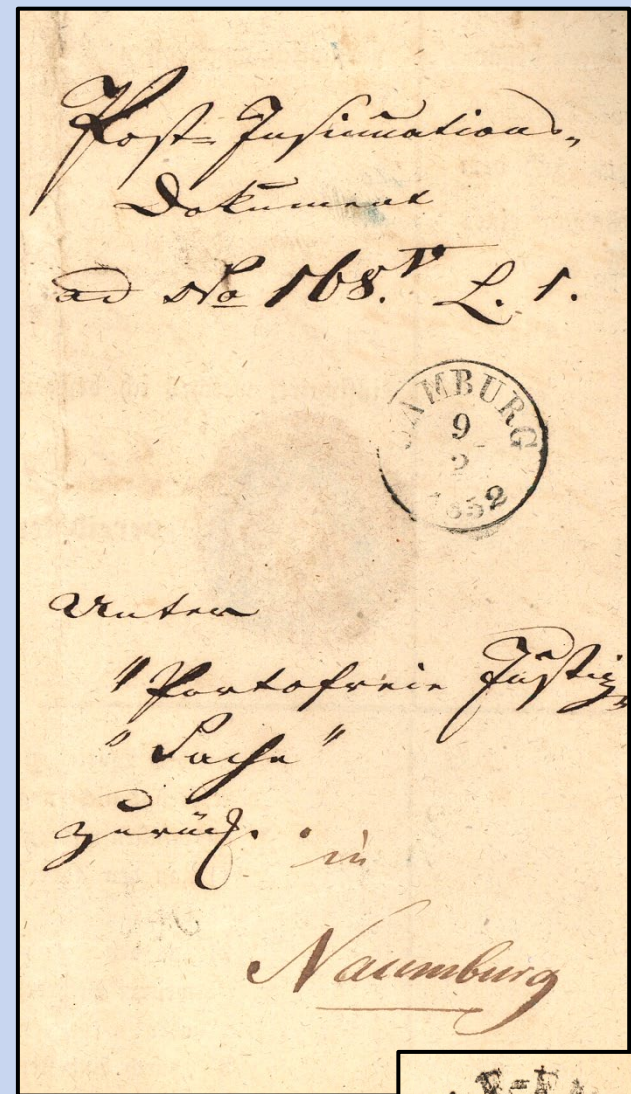 Post-Insinuations-
Dokument
ad No 168. V L. 1.
CAMBURG
9
2
1852
Unter
"Portofreie Justiz-
"Sache"
zurück. in
Naumburg